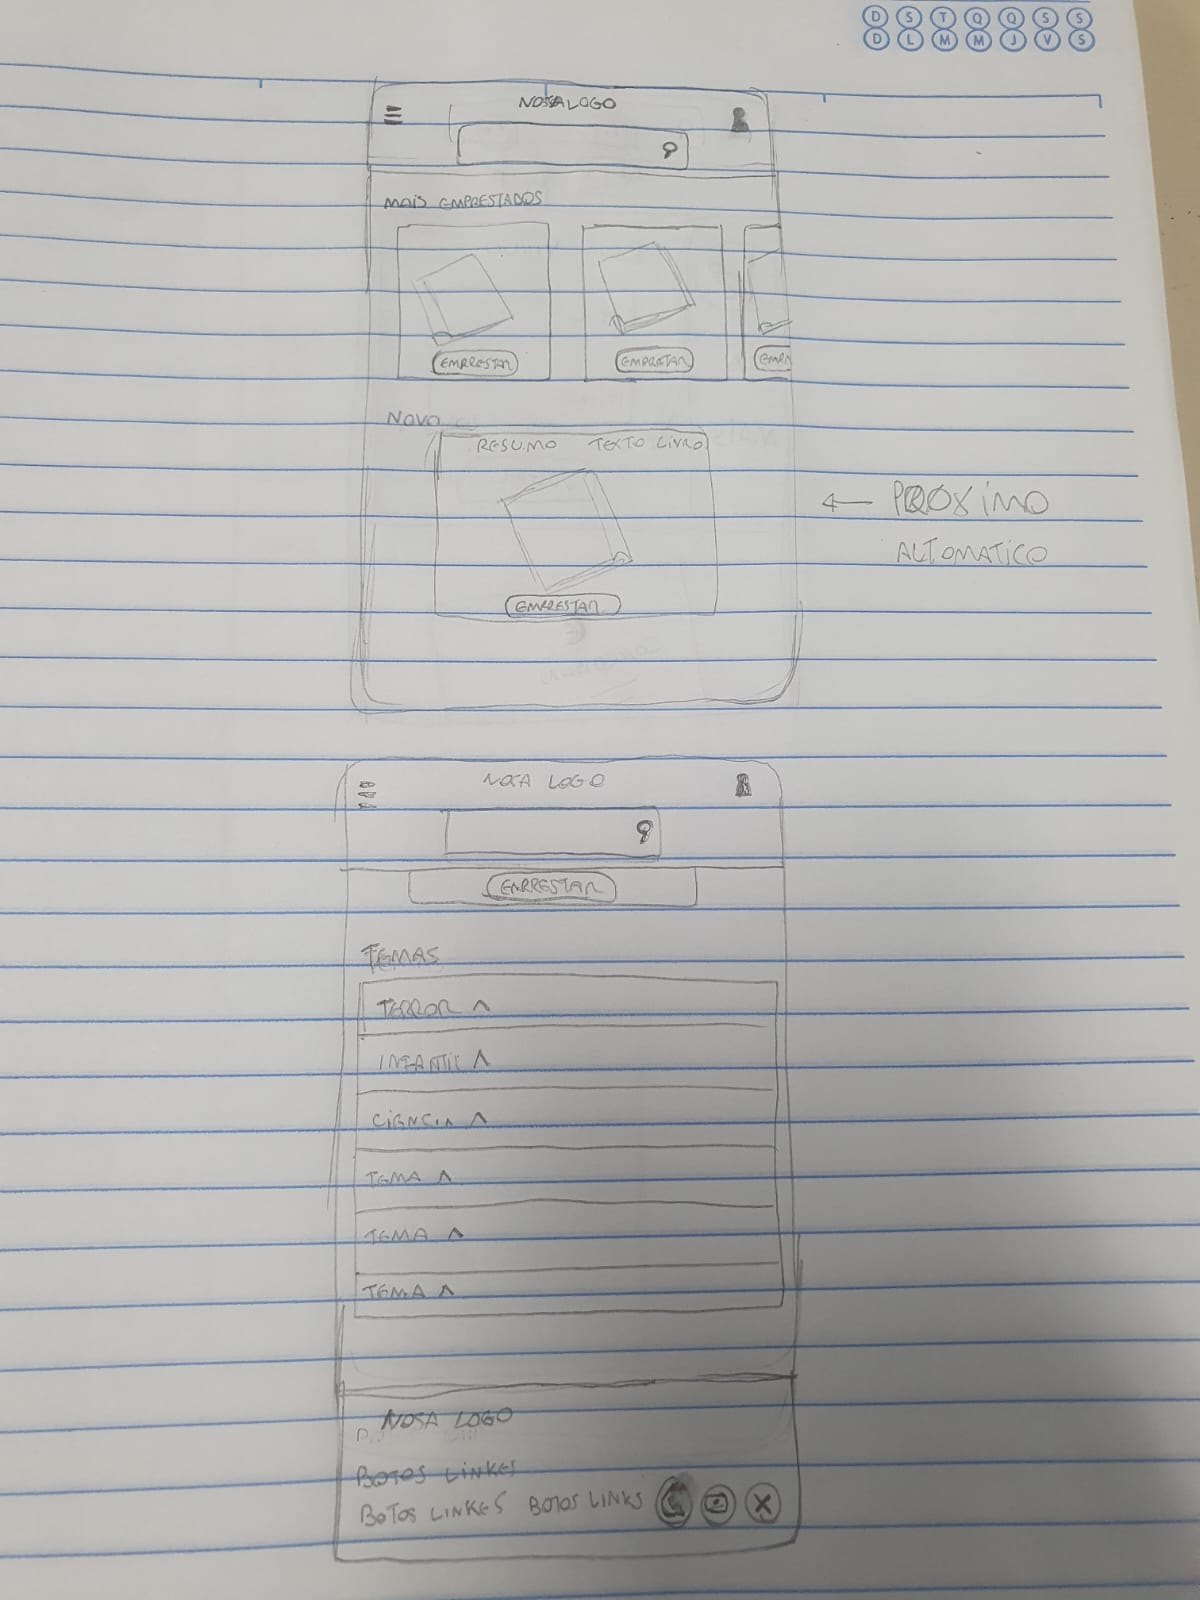 D S T Q Q S S
D L M M J V S
NOSSA LOGO
MAIS EMPRESTADOS
EMPRESTAR EMPRETAR EMPR
NOVO
RESUMO TEXTO LIVRO
← PRÓXIMO
AUTOMATICO
EMPRESTAR
NOSA LOGO
EMPRESTAR
TEMAS
TERROR ^
INFANTIL ^
CIÊNCIA ^
TEMA ^
TEMA ^
TEMA ^
NOSA LOGO
BOTOS LINKES
BOTOS LINKES BOTOS LINKS X